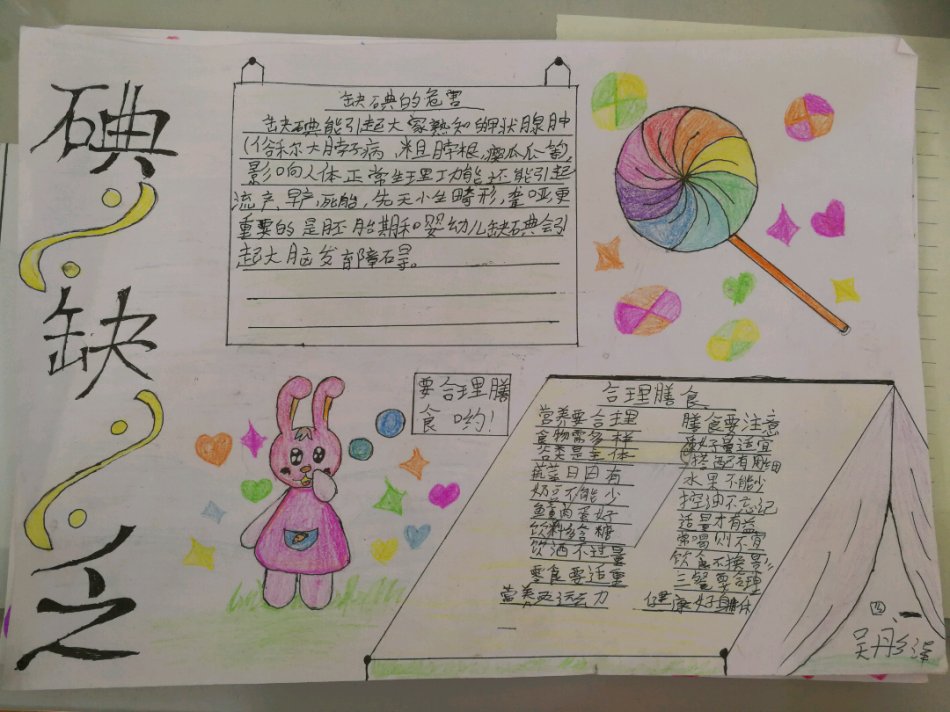 碘缺乏
缺碘的危害
缺碘能引起大家熟知的甲状腺肿
大脖子病,粗脖根,瘿瓜瓜
影响人体正常生理功能,还能引起
流产,早产,死胎,先天小生畸形,聋哑更
重要的是胚胎期和婴幼儿缺碘会引
起大脑发育障碍。
要合理膳
食哟!
合理膳食
营养要合理 膳食要注意
食物需多样 适宜
谷类是主体 搭配有粗细
蔬菜日日有 水果不能少
奶豆不能少 控油不忘记
鱼禽肉蛋好 适量才有益
饮料多含糖 常喝则不宜
饮酒不过量 饮食不
零食要适量 三餐要合理
营养 活力 健康好身体
四、一
吴丹